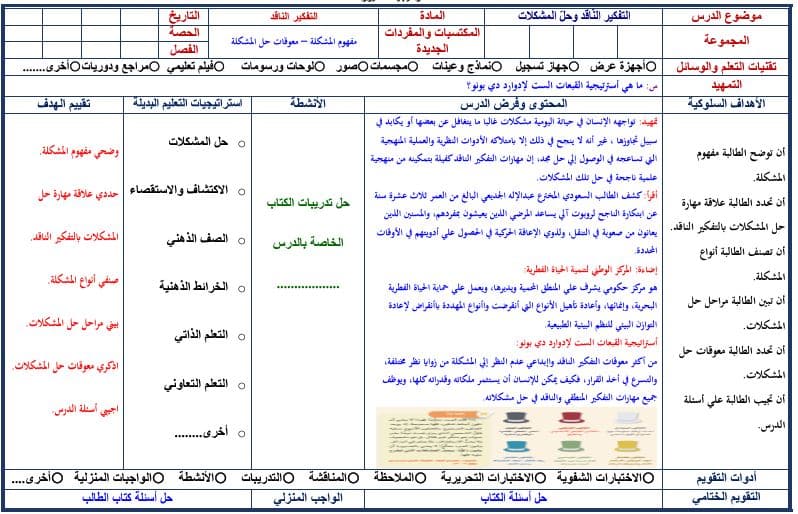 موضوع الدرس
التفكير النّاقد وحلّ المشكلات
المادة
التفكير الناقد
التاريخ
المجموعة
المكتسبات والمفردات الجديدة
مفهوم المشكلة – معوقات حل المشكلة
الحصة
الفصل
تقنيات التعلم والوسائل
○أجهزة عرض ○جهاز تسجيل ○نماذج وعينات ○مجسمات ○صور ○لوحات ورسومات ○فيلم تعليمي ○مراجع ودوريات ○أخرى.......
التمهيد
س: ما هي أستراتيجية القبعات الست لإدوارد دي بونو؟
الأهداف السلوكية
المحتوى وفرض الدرس
الأنشطة
استراتيجيات التعليم البديلة
تقييم الهدف
أن توضح الطالبة مفهوم
المشكلة.
أن تحدد الطالبة علاقة مهارة
حل المشكلات بالتفكير الناقد.
أن تصنف الطالبة أنواع
المشكلة.
أن تبين الطالبة مراحل حل
المشكلات.
أن تحدد الطالبة معوقات حل
المشكلات.
أن تجيب الطالبة علي أسئلة
الدرس.
تمهيد: تواجهه الإنسان في حياتة اليومية مشكلات غالبا ما يتغافل عن بعضها أو يكابد في
سبيل تجاوزها ، غير أنه لا ينجح في ذلك إلا بامتلاكه الأدوات النظرية والعملية المنهجية
التي تساعده في الوصول إلي حل مجد، إن مهارات التفكير الناقد كفيلة بتمكينه من منهجية
علمية ناجحة في حل تلك المشكلات.
أقرأ: كشف الطالب السعودي المخترع عبدالإله الجديعي البالغ من العمر ثلاث عشرة سنة
عن ابتكارة الناجح لروبوت آلي يساعد المرضي الذين يعيشون بمفردهم، والمسنين الذين
يعانون من صعوبة في التنقل، ولذوي الإعاقة الحركية في الحصول علي أدويتهم في الأوقات
المحددة.
إضاءة: المركز الوطني لتنمية الحياة الفطرية:
هو مركز حكومي يشرف علي المنطق المحمية ويديرها، ويعمل علي حماية الحياة الفطرية
البحرية، وإنمائها، وأعادة تأهيل الأنواع التي أنقرضت وأأنواع المهددة بأنقراض لإعادة
التوازن البيئي للنظم البيئية الطبيعية.
أستراتيجية القبعات الست لإدوارد دي بونو:
من أكثر معوقات التفكير الناقد والإبداعي عدم النظر إلي المشكلة من زوايا نظر مختلفة،
والتسرع في أخذ القرار، فكيف يمكن للإنسان أن يستثمر ملكاته وقدراته كلها، ويوظف
جميع مهارات التفكير المنطقي والناقد في حل مشكلاته.
حل تدريبات الكتاب
الخاصة بالدرس
.................
○ حل المشكلات
○ الاكتشاف والاستقصاء
○ الصف الذهني
○ الخرائط الذهنية
○ التعلم الذاتي
○ التعلم التعاوني
○ أخرى........
وضحي مفهوم المشكلة.
حددي علاقة مهارة حل
المشكلات بالتفكير الناقد.
صنفي أنواع المشكلة.
بيني مراحل حل المشكلات.
اذكري معوقات حل المشكلات.
اجيبي أسئلة الدرس.
أدوات التقويم
○الاختبارات الشفوية ○الاختبارات التحريرية ○الملاحظة ○المناقشة ○التدريبات ○الأنشطة ○الواجبات المنزلية ○أخرى....
التقويم الختامي
حل أسئلة الكتاب
الواجب المنزلي
حل أسئلة كتاب الطالب